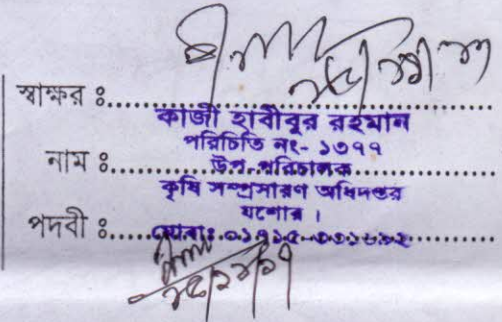 স্বাক্ষর ঃ
কাজী হাবীবুর রহমান
পরিচিতি নং- ১৩৭৭
নাম ঃ
উপ-পরিচালক
কৃষি সম্প্রসারণ অধিদপ্তর
যশোর।
পদবী ঃ